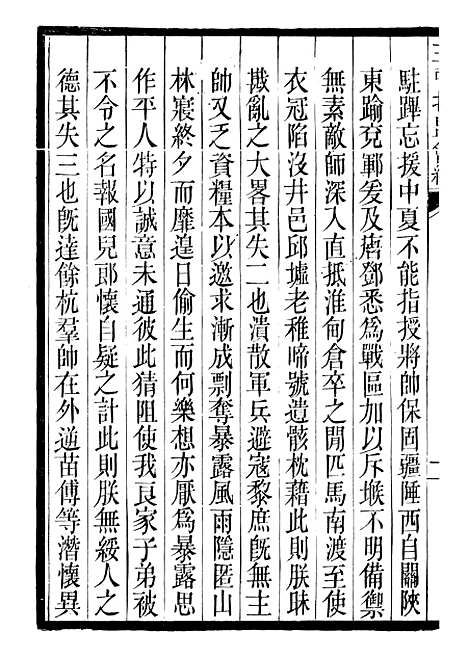 駐蹕忘援中夏不能指授將帥保固疆陲西自關陝
東踰兗鄆爰及唐鄧悉為戰區加以斥堠不明備禦
無素敵師深入直抵淮甸倉卒之閒匹馬南渡至使
衣冠陷沒井邑邱墟老稚啼號遺骸枕藉此則朕昧
撥亂之大畧其失二也潰散軍兵避寇黎庶旣無主
帥又乏資糧本以邀求漸成剽奪暴露風雨隱匿山
林寢終夕而靡遑日偷生而何樂想亦厭為暴露思
作平人特以誠意未通彼此猜阻使我良家子弟被
不令之名報國兒郎懷自疑之計此則朕無綏人之
德其失三也旣達餘杭羣帥在外逆苗傅等潛懷異